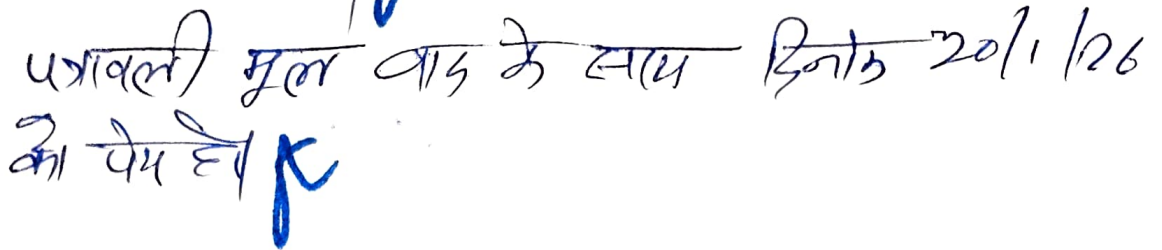 पत्रावली मूल वाद के साथ दिनांक 20/1/26
को पेश हो।